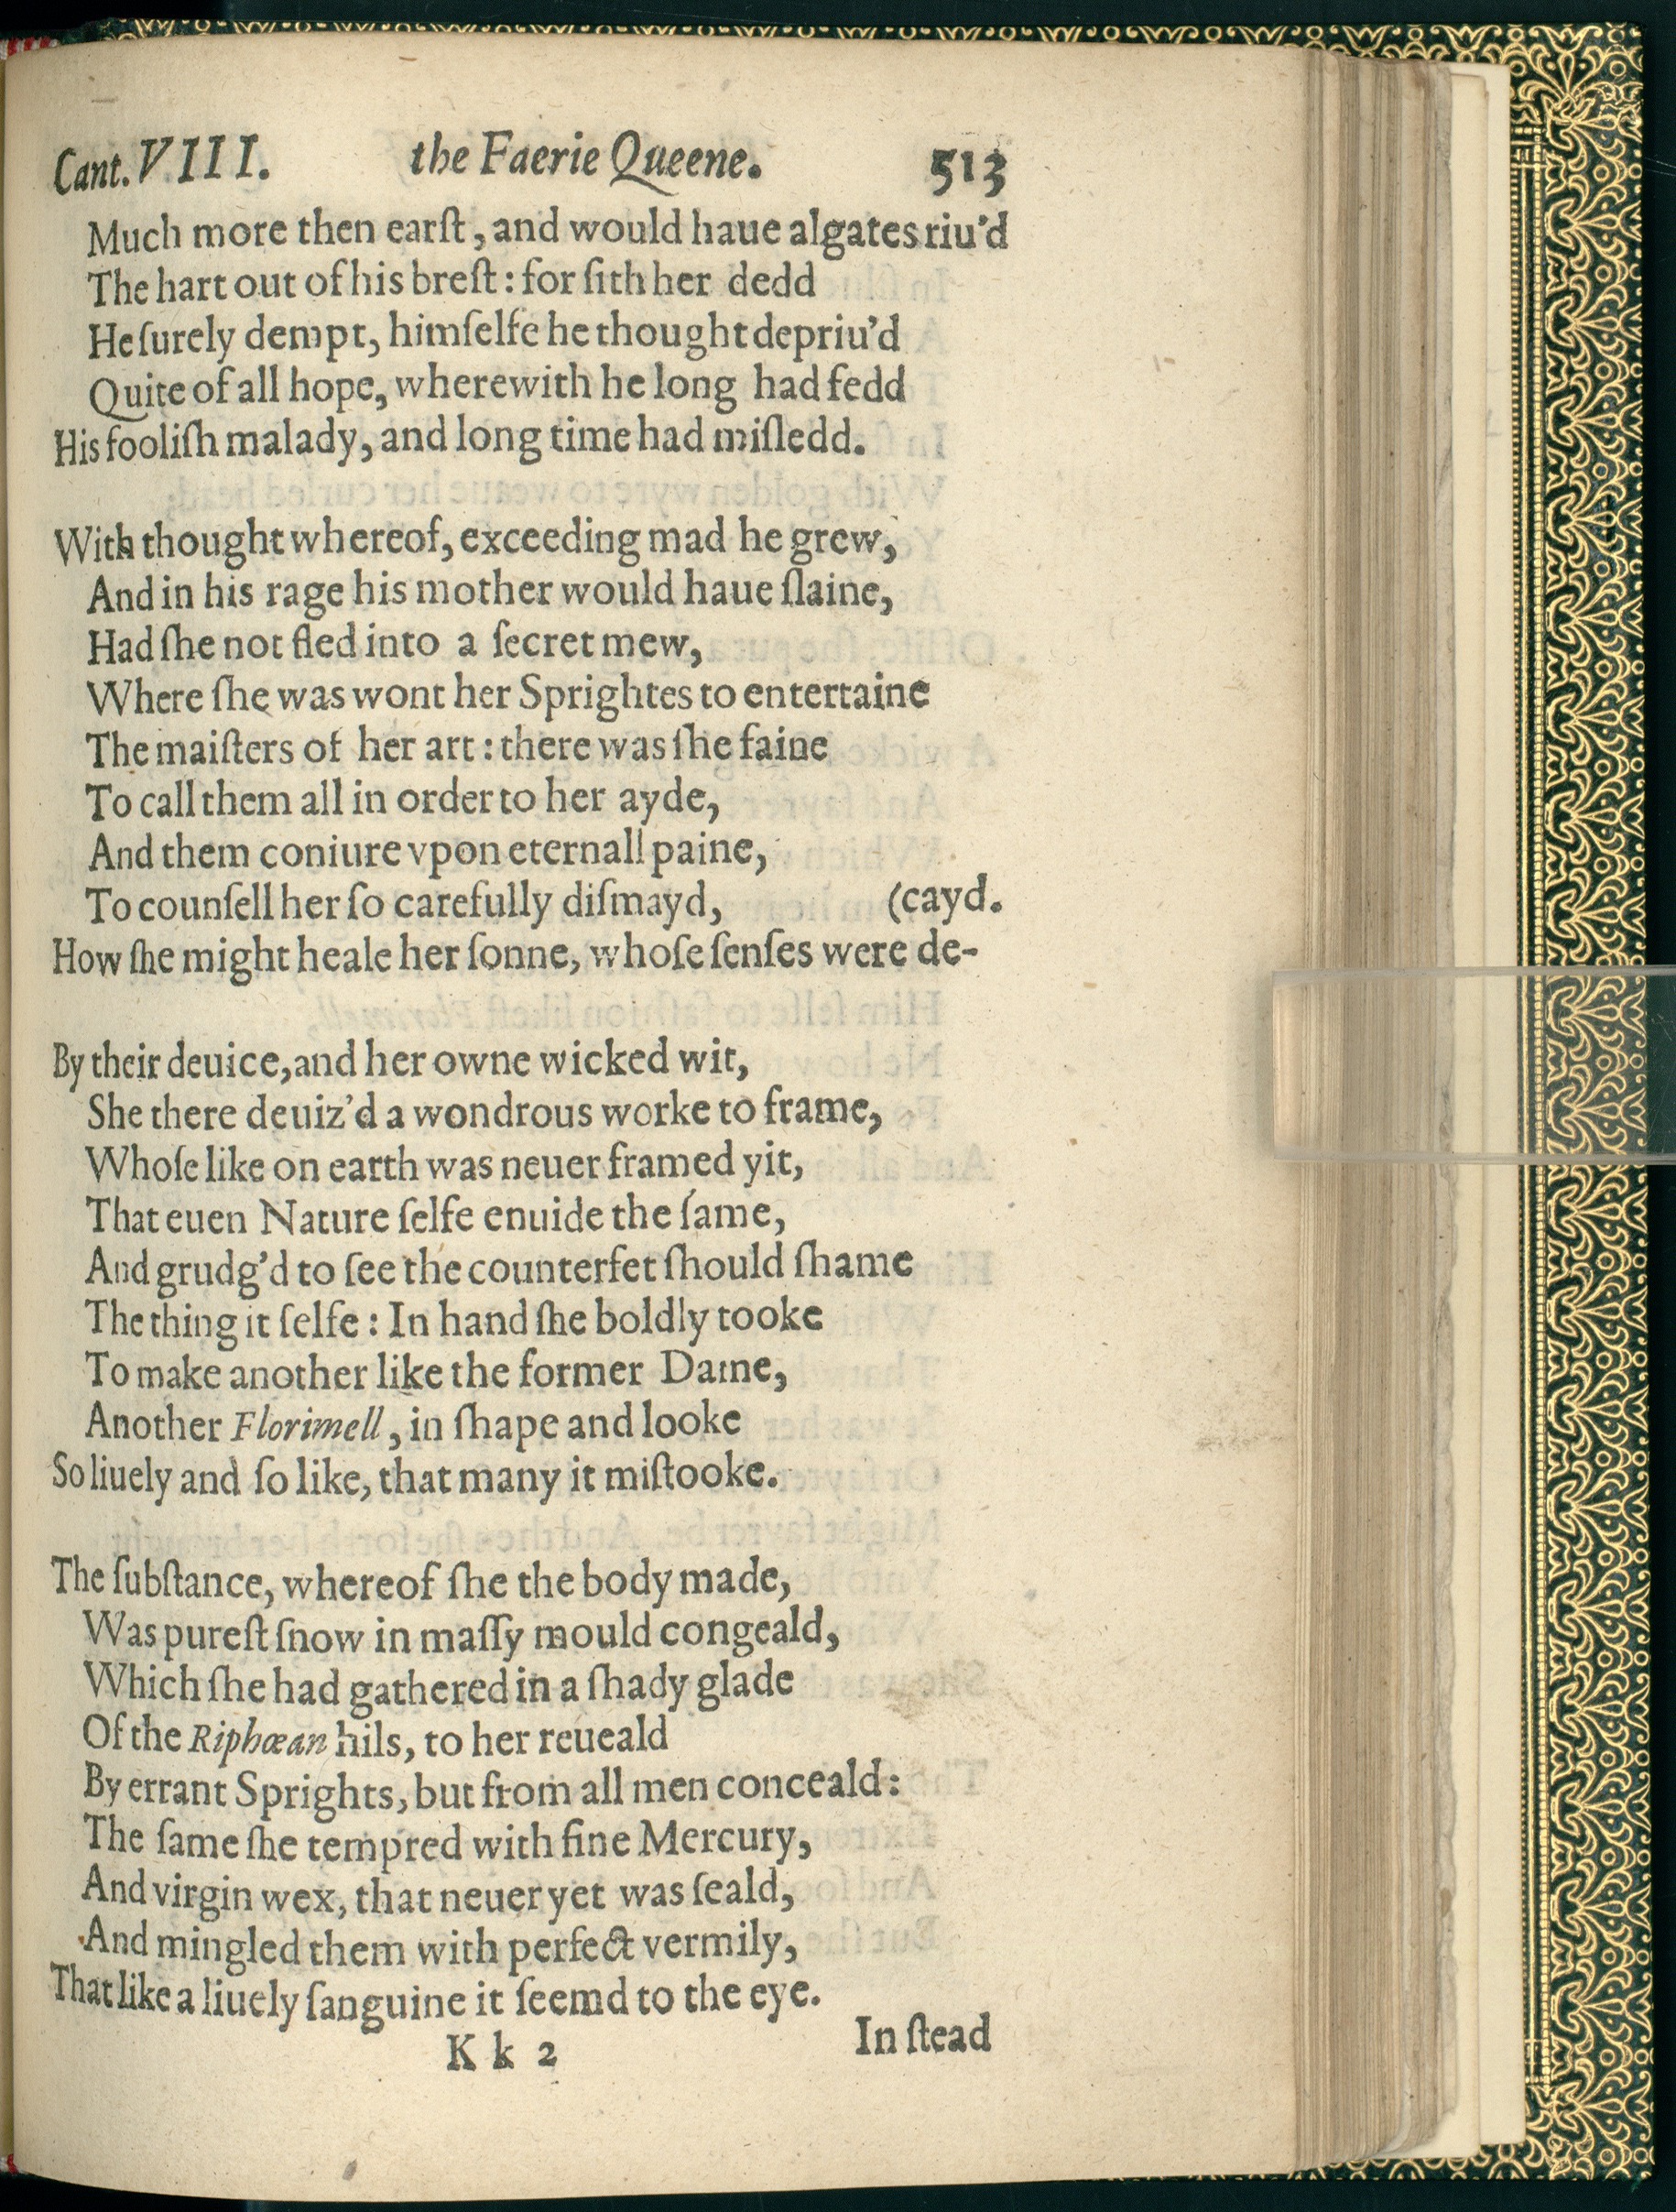 Cant. VIII. the Faerie Queene. 513
Much more then earſt, and would haue algates riu'd
The hart out of his breſt: for ſith her dedd
He ſurely dempt, himſelfe he thought depriu'd
Quite of all hope, wherewith he long had fedd
His fooliſh malady, and long time had miſledd.
With thought whereof, exceeding mad he grew,
And in his rage his mother would haue ſlaine,
Had ſhe not fled into a ſecret mew,
Where ſhe was wont her Sprightes to entertaine
The maiſters of her art: there was ſhe faine
To call them all in order to her ayde,
And them coniure vpon eternall paine,
To counſell her ſo carefully diſmayd, (cayd.
How ſhe might heale her ſonne, whoſe ſenſes were de-
By their deuice, and her owne wicked wit,
She there deuiz'd a wondrous worke to frame,
Whoſe like on earth was neuer framed yit,
That euen Nature ſelfe enuide the ſame,
And grudg'd to ſee the counterfet ſhould ſhame
The thing it ſelfe: In hand ſhe boldly tooke
To make another like the former Dame,
Another Florimell, in ſhape and looke
So liuely and ſo like, that many it miſtooke.
The ſubſtance, whereof ſhe the body made,
Was pureſt ſnow in maſſy mould congeald,
Which ſhe had gathered in a ſhady glade
Of the Riphœan hils, to her reueald
By errant Sprights, but from all men conceald:
The ſame ſhe tempred with fine Mercury,
And virgin wex, that neuer yet was ſeald,
And mingled them with perfect vermily,
That like a liuely ſanguine it ſeemd to the eye.
K k 2 In ſtead